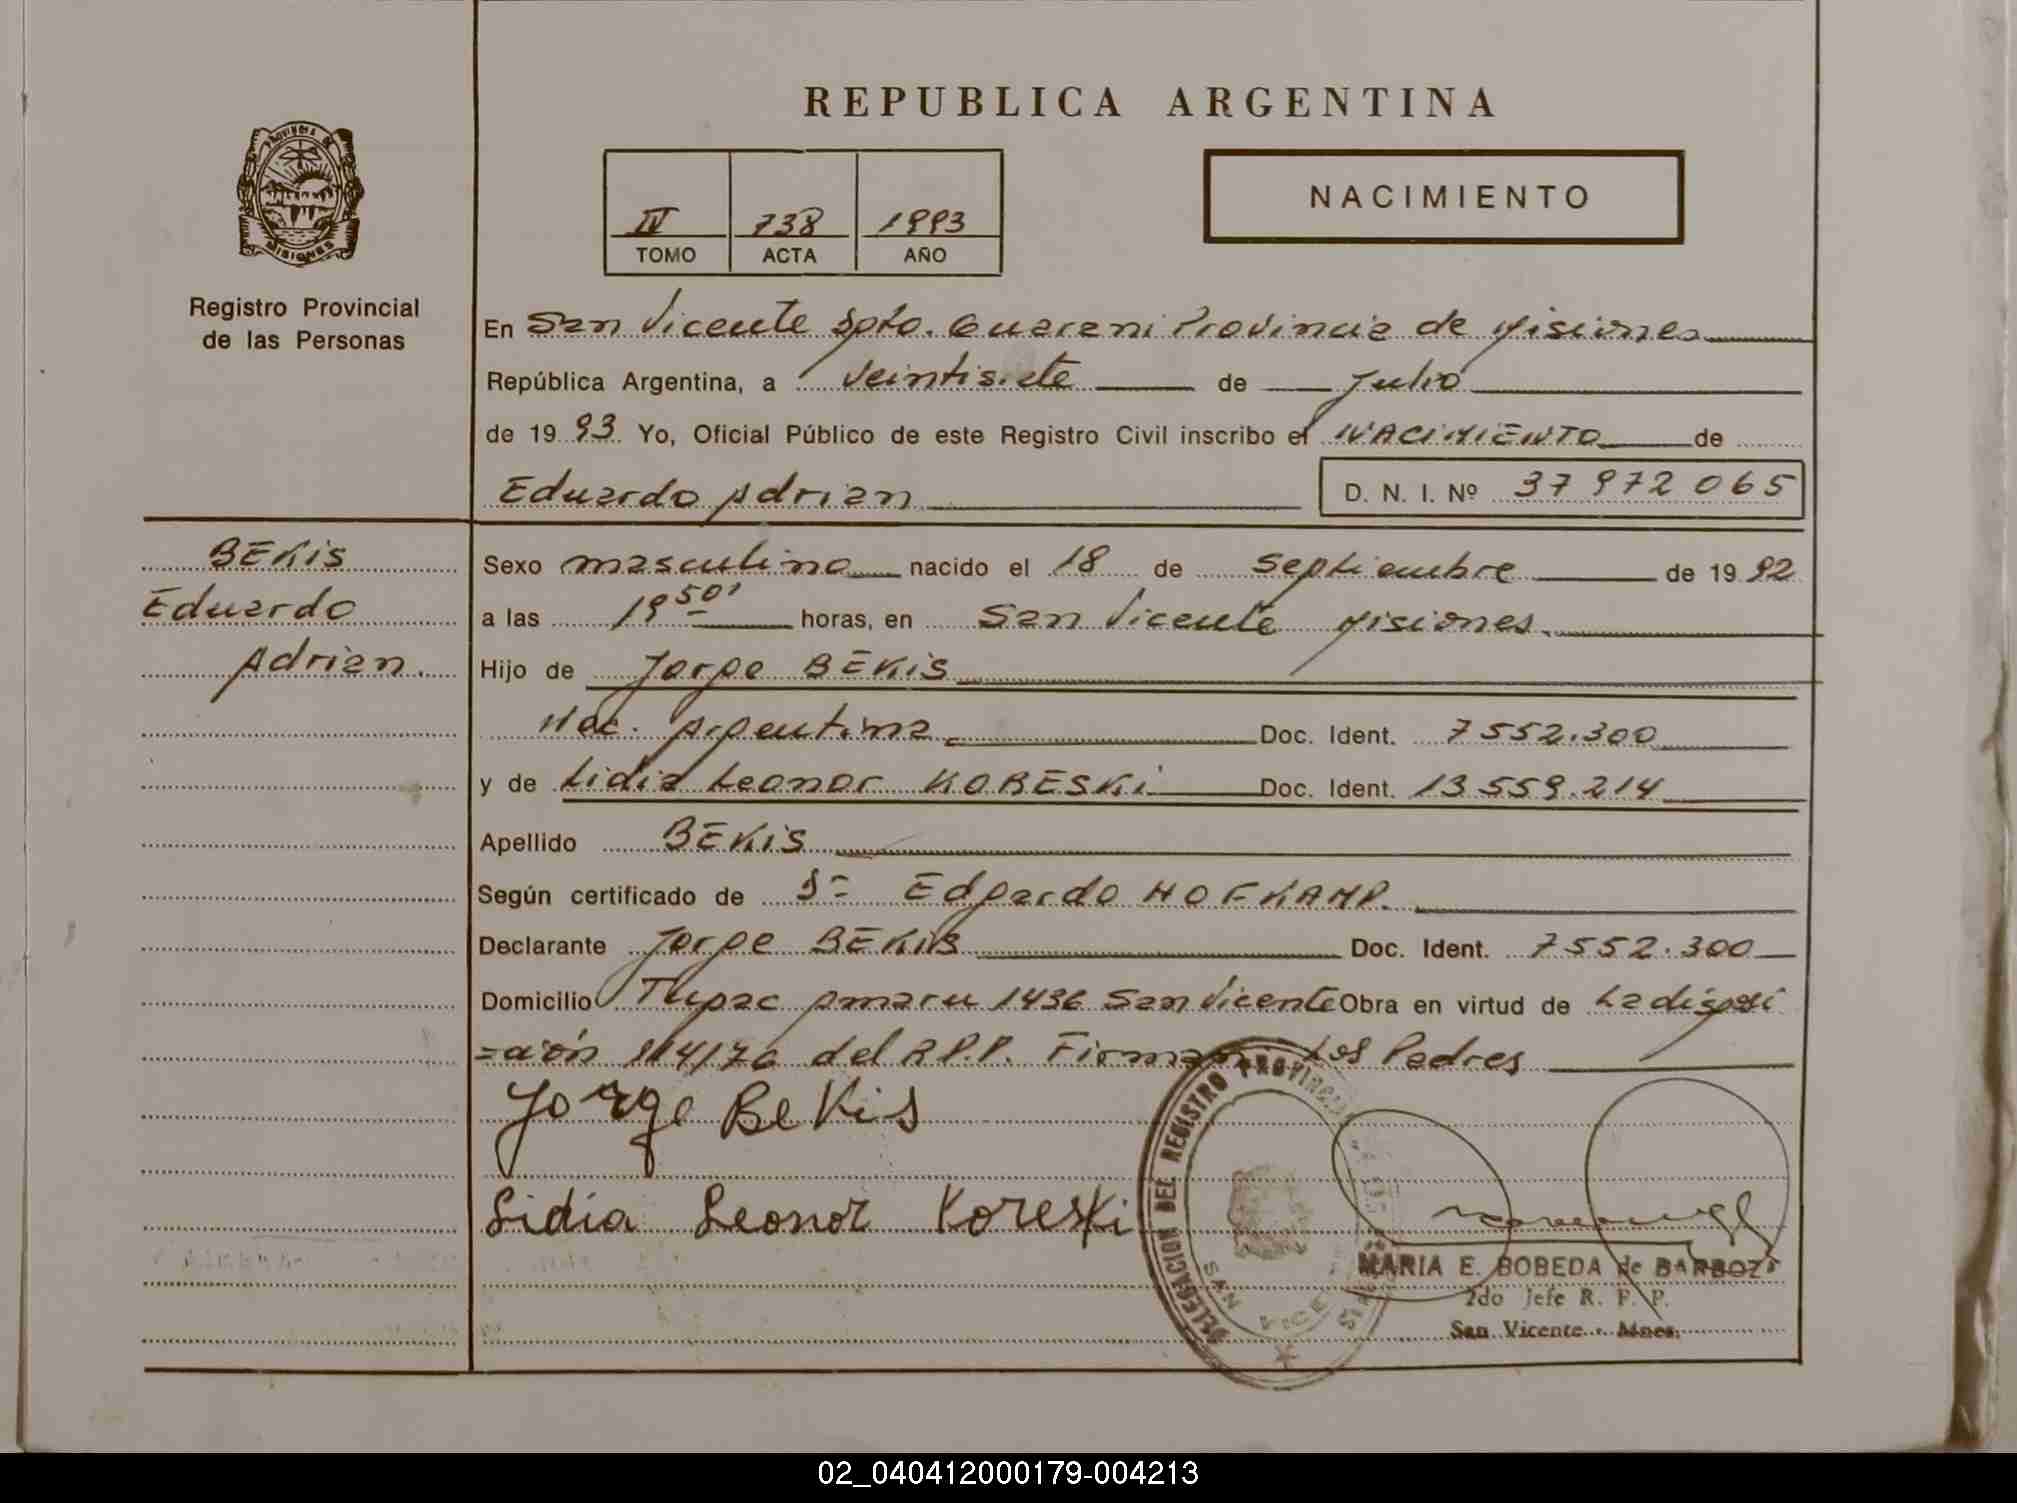 REPUBLICA ARGENTINA
PROVINCIA DE
MISIONES
Registro Provincial
de las Personas
IV 738 1993
TOMO ACTA AÑO
NACIMIENTO
En San Vicente Dpto. Guarani Provincia de Misiones
República Argentina, a veintisiete de Julio
de 1993 Yo, Oficial Público de este Registro Civil inscribo el NACIMIENTO de
Eduardo Adrian D. N. I. Nº 37 972 065
BEKIS
Eduardo
Adrian.
Sexo masculino nacido el 18 de Septiembre de 1992
a las 19 50' horas, en San Vicente Misiones.
Hijo de Jorge BEKIS
Nac. Argentina Doc. Ident. 7552.300
y de Lidia Leonor KORESKI Doc. Ident. 13.559.214
Apellido BEKIS
Según certificado de Edgardo HOFKAMP.
Declarante Jorge BEKIS Doc. Ident. 7552.300
Domicilio Tupac Amaru 1436 San Vicente Obra en virtud de La disposi
=ción 114/76 del R.P.P. Firman Los Padres
Jorge BeKis
Lidia Leonor Koreski
DELEGACION DEL REGISTRO PROVINCIAL
SAN VICENTE
MARIA E. BOBEDA de BARBOZA
2do Jefe R. P. P.
San Vicente - Mnes.
02_040412000179-004213